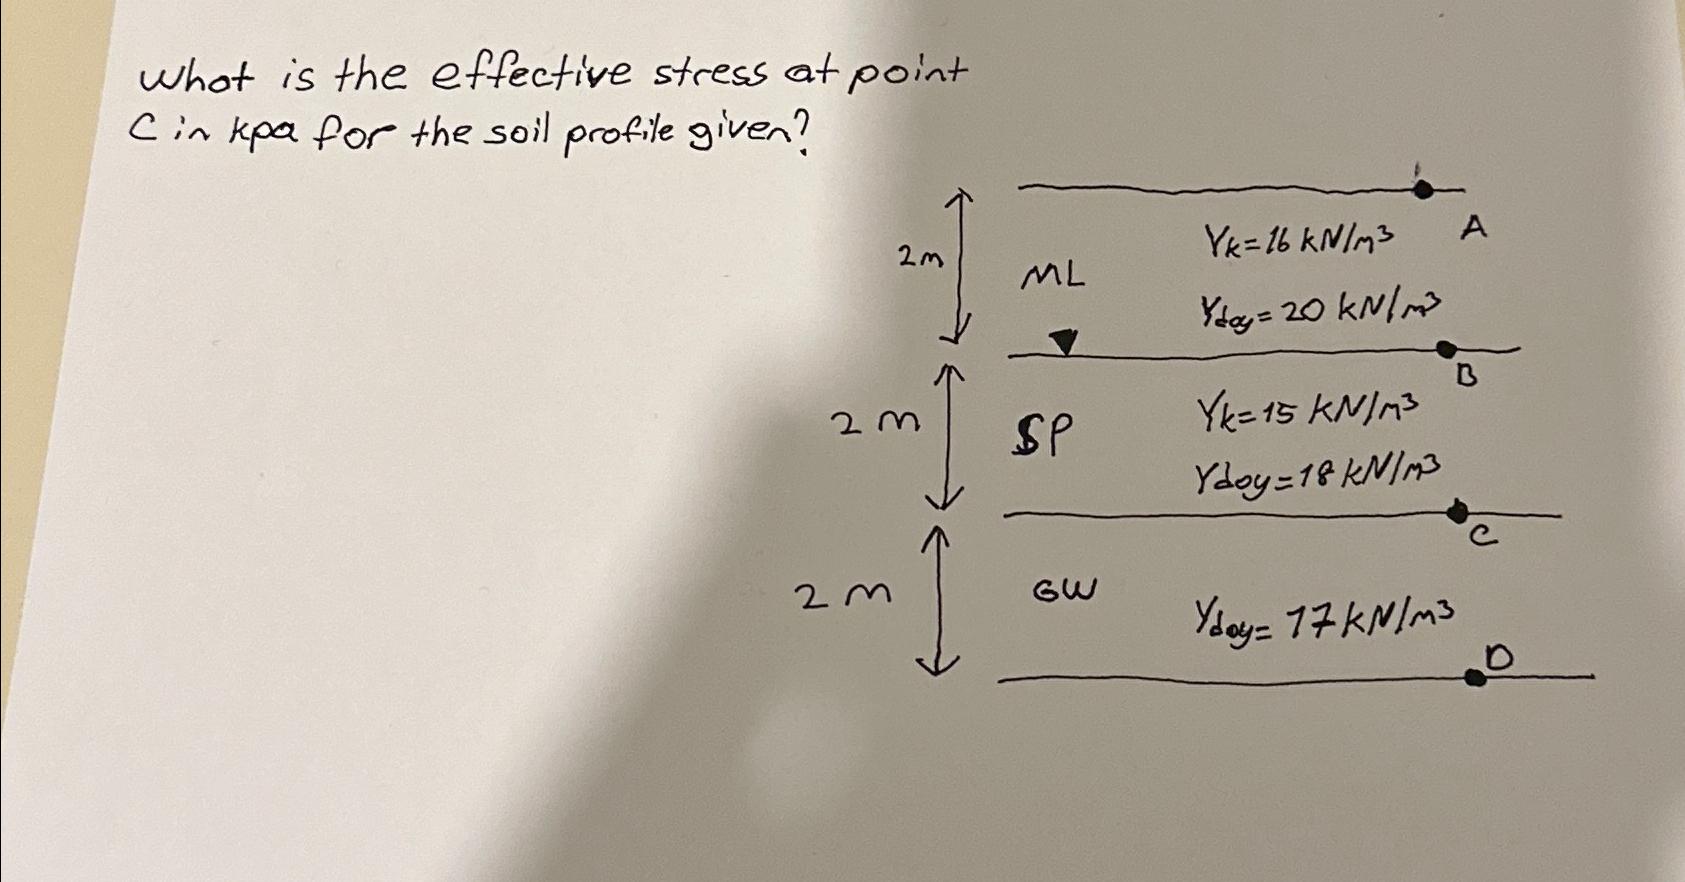 what is the effective stress at point
C in kpa for the soil profile given?
A
2m
ML
γk=16 kN/m³
γdoy=20 kN/m³
B
2 m
SP
γk=15 kN/m³
γdoy=18 kN/m³
C
2 m
GW
γdoy= 17 kN/m³
D